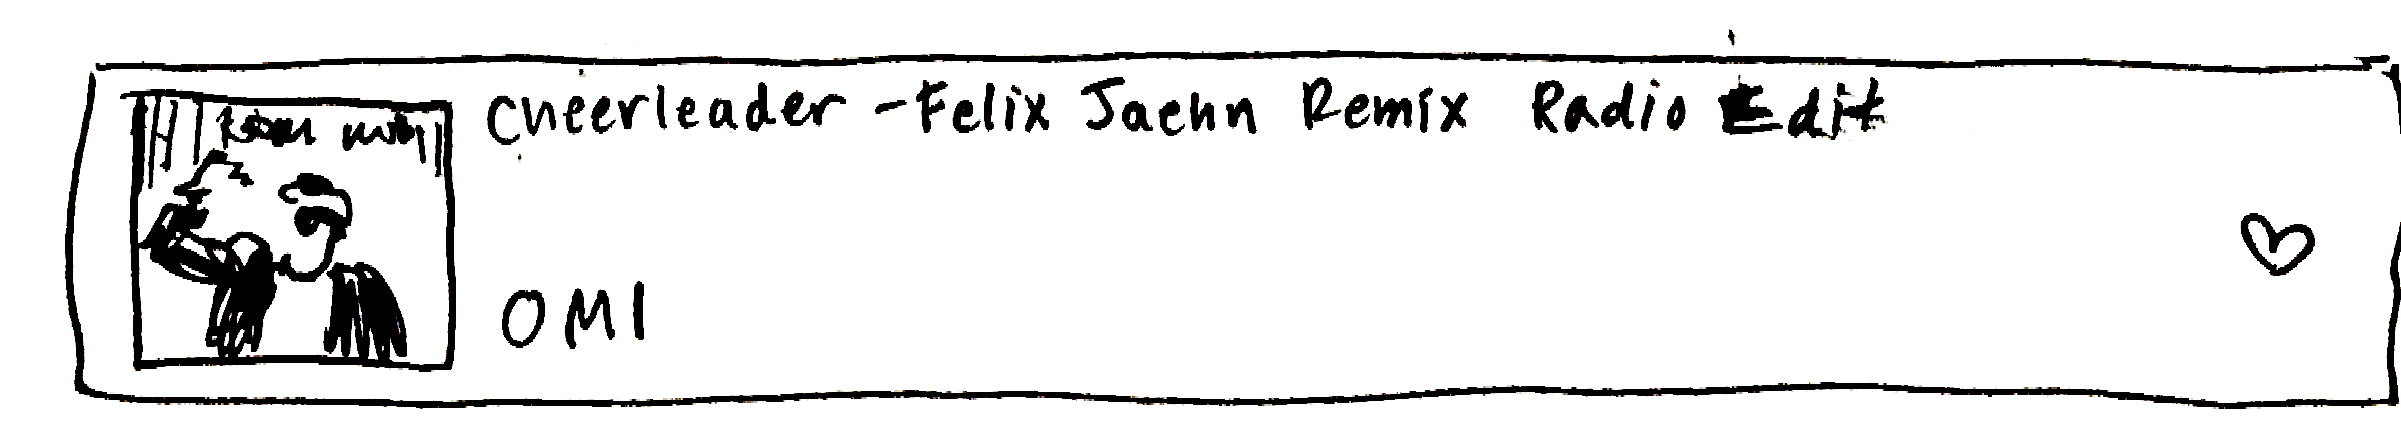 Cheerleader - Felix Jaehn Remix Radio Edit
OMI